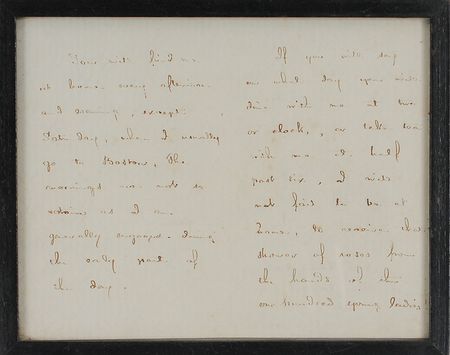 You will find me
at home every afternoon
and evening, except
day, when I usually
go to Boston. The
mornings are not so
certain as I am
generally engaged during
the early part of
the day.
If you will say
on what day you will
dine with me at two
o'clock, or take tea
with me at half
past six, I will
not fail to be at
home, to receive
shower of roses from
the hands of the
one hundred young ladies!